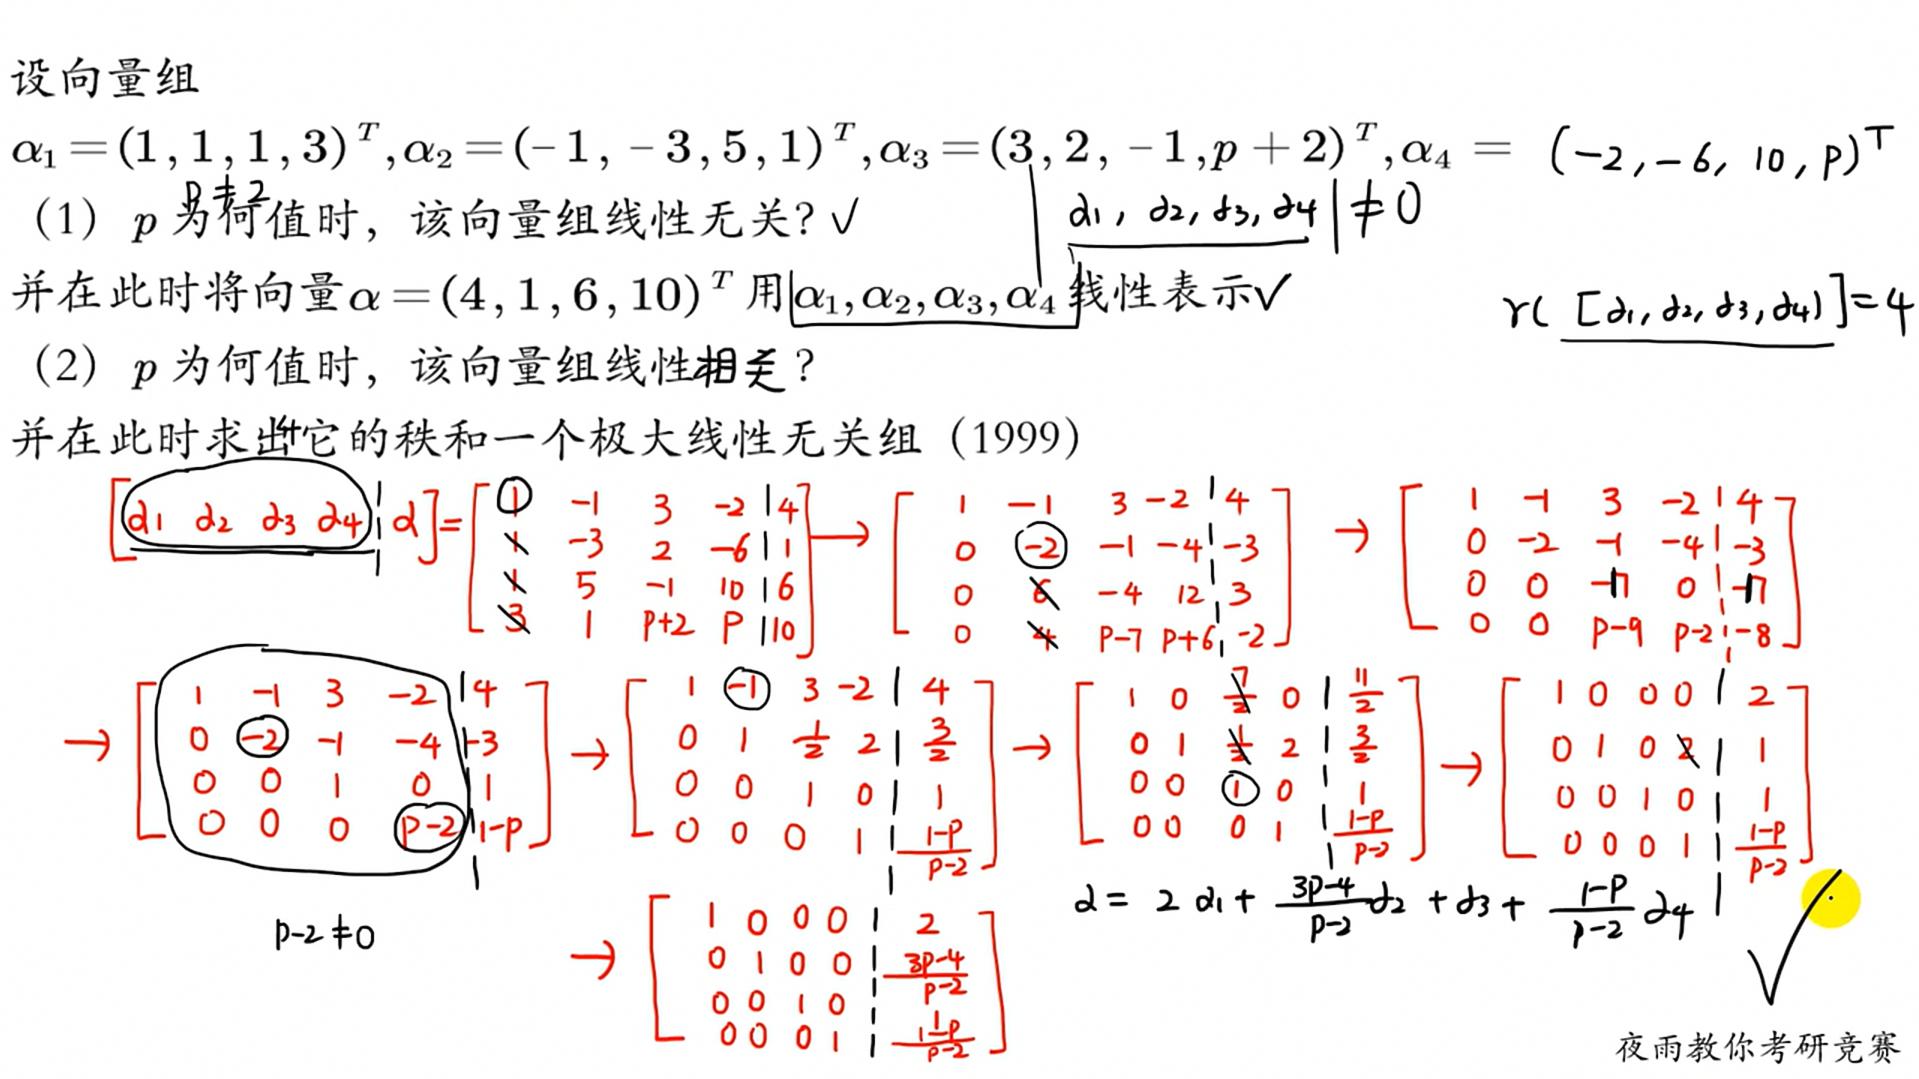 设向量组
α₁=(1,1,1,3)ᵀ,α₂=(−1,−3,5,1)ᵀ,α₃=(3,2,−1,p+2)ᵀ,α₄= (−2,−6,10,p)ᵀ
p≠2
(1) p 为何值时，该向量组线性无关? √
α₁, α₂, α₃, α₄|≠0
并在此时将向量α=(4,1,6,10)ᵀ用α₁,α₂,α₃,α₄线性表示√
r([α₁,α₂,α₃,α₄)]=4
(2) p 为何值时，该向量组线性相关?
并在此时求出它的秩和一个极大线性无关组 (1999)
[α₁ α₂ α₃ α₄ | α]=
1 −1 3 −2 | 4
1 −3 2 −6 | 1
1 5 −1 10 | 6
3 1 p+2 p | 10
→
1 −1 3 −2 | 4
0 −2 −1 −4 | −3
0 6 −4 12 | 3
0 4 p−7 p+6 | −2
→
1 −1 3 −2 | 4
0 −2 −1 −4 | −3
0 0 −7 0 | −7
0 0 p−9 p−2 | −8
→
1 −1 3 −2 | 4
0 −2 −1 −4 | −3
0 0 1 0 | 1
0 0 0 p−2 | 1−p
→
1 −1 3 −2 | 4
0 1 1/2 2 | 3/2
0 0 1 0 | 1
0 0 0 1 | (1−p)/(p−2)
→
1 0 7/2 0 | 11/2
0 1 1/2 2 | 3/2
0 0 1 0 | 1
0 0 0 1 | (1−p)/(p−2)
→
1 0 0 0 | 2
0 1 0 2 | 1
0 0 1 0 | 1
0 0 0 1 | (1−p)/(p−2)
p−2≠0
→
1 0 0 0 | 2
0 1 0 0 | (3p−4)/(p−2)
0 0 1 0 |
0 0 0 1 | (1−p)/(p−2)
α= 2α₁+ (3p−4)/(p−2) α₂ +α₃+ (1−p)/(p−2) α₄
夜雨教你考研竞赛